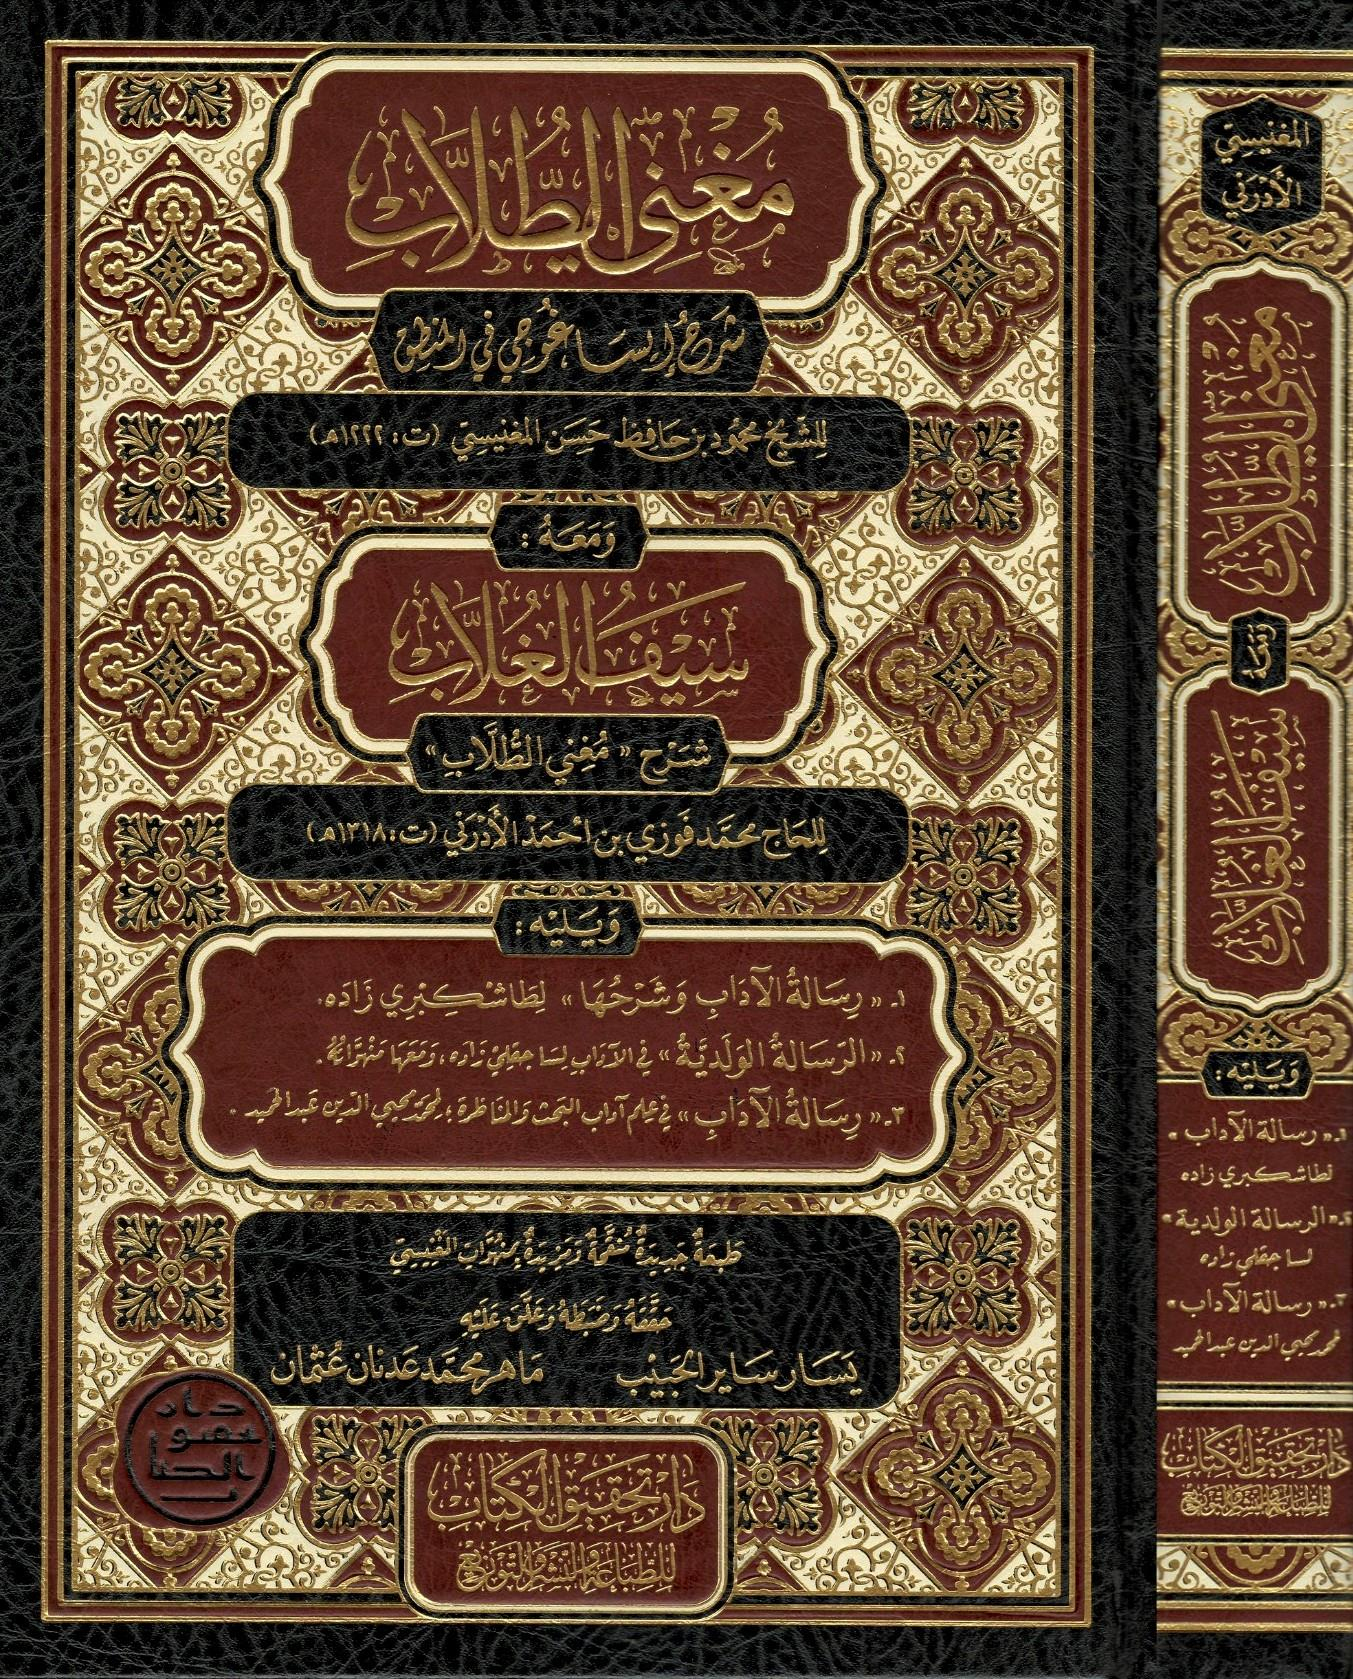 مُغْنِي الطُّلَّابِ
شَرْحُ إِيسَاغُوجِي فِي المَنْطِقِ
لِلشَّيْخِ مَحْمُود بْن حَافِظ حَسَن المَغْنِيسِيّ (ت: ١٢٢٢هـ)
وَمَعَهُ :
سَيْفُ الغُلَّابِ
شَرْح « مُغْنِي الطُّلَّابِ »
لِلحَاج مُحَمَّد فَوْزِي بْن أَحْمَد الأَدْرَنِيّ (ت: ١٣١٨هـ)
وَيَلِيْهِ :
١ـ « رِسَالَةُ الآدَابِ وَشَرْحُهَا » لِطَاشْكُبْرِي زَادَه.
٢ـ « الرِّسَالَةُ الوَلَدِيَّةُ » فِي الآدَابِ لِسَاجَقْلِي زَادَه، وَمَعَهَا مَنْهُوَّاتُهُ.
٣ـ « رِسَالَةُ الآدَابِ » فِي عِلْم آدَابِ البَحْثِ وَالمُنَاظَرَةِ، لِمُحَمَّد مُحْيِي الدِّين عَبْد الحَمِيد.
طَبْعَةٌ جَدِيدَةٌ مُنَقَّحَةٌ وَمَزِيدَةٌ بِمَنْهُوَّاتِ المَغْنِيسِيّ
حَقَّقَهُ وَضَبَطَهُ وَعَلَّقَ عَلَيْهِ
يَسَار سَايِر الحَبِيْب مَاهِر مُحَمَّد عَدْنَان عُثْمَان
دَار تَحْقِيقِ الكِتَاب
لِلطِّبَاعَةِ وَالنَّشْرِ وَالتَّوْزِيْعِ
المَغْنِيسِيّ
الأَدْرَنِيّ
مُغْنِي الطُّلَّابِ
وَمَعَهُ
سَيْفُ الغُلَّابِ
وَيَلِيْهِ :
١ـ « رسالة الآداب »
لطاشكبري زاده
٢ـ « الرسالة الولدية »
لساجقلي زاده
٣ـ « رسالة الآداب »
لمحمد محيي الدين عبد الحميد
دَار تَحْقِيقِ الكِتَاب
لِلطِّبَاعَةِ وَالنَّشْرِ وَالتَّوْزِيْعِ